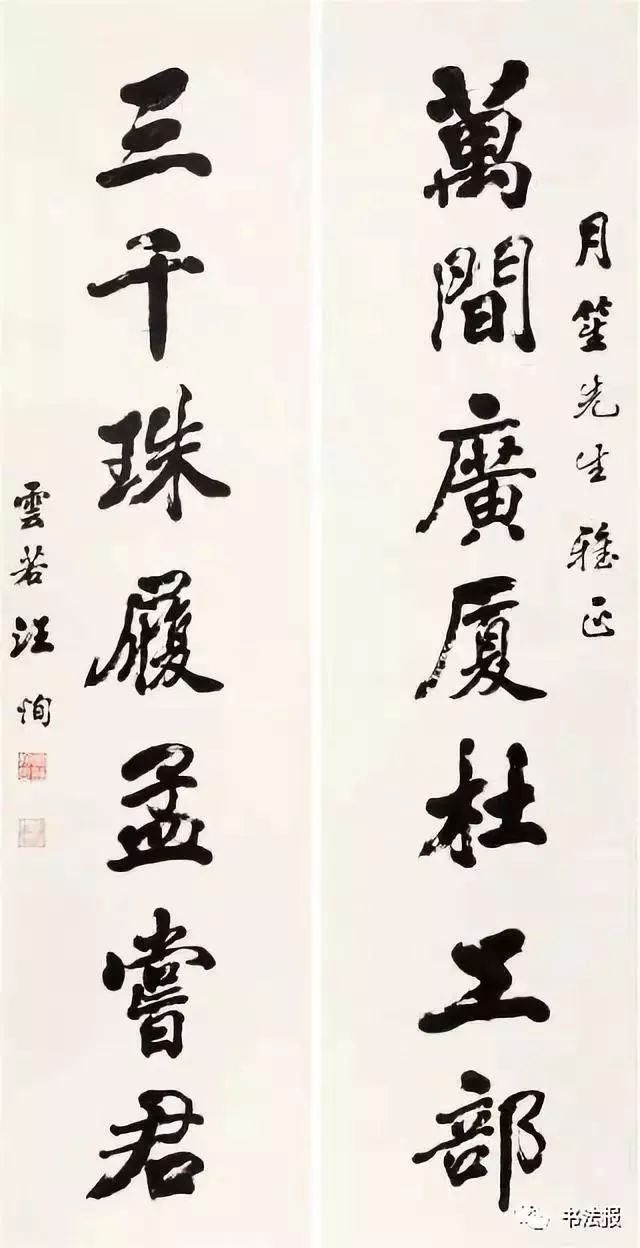 月笙先生雅正
萬間廣厦杜工部
三千珠履孟嘗君
雲若汪恂
书法报